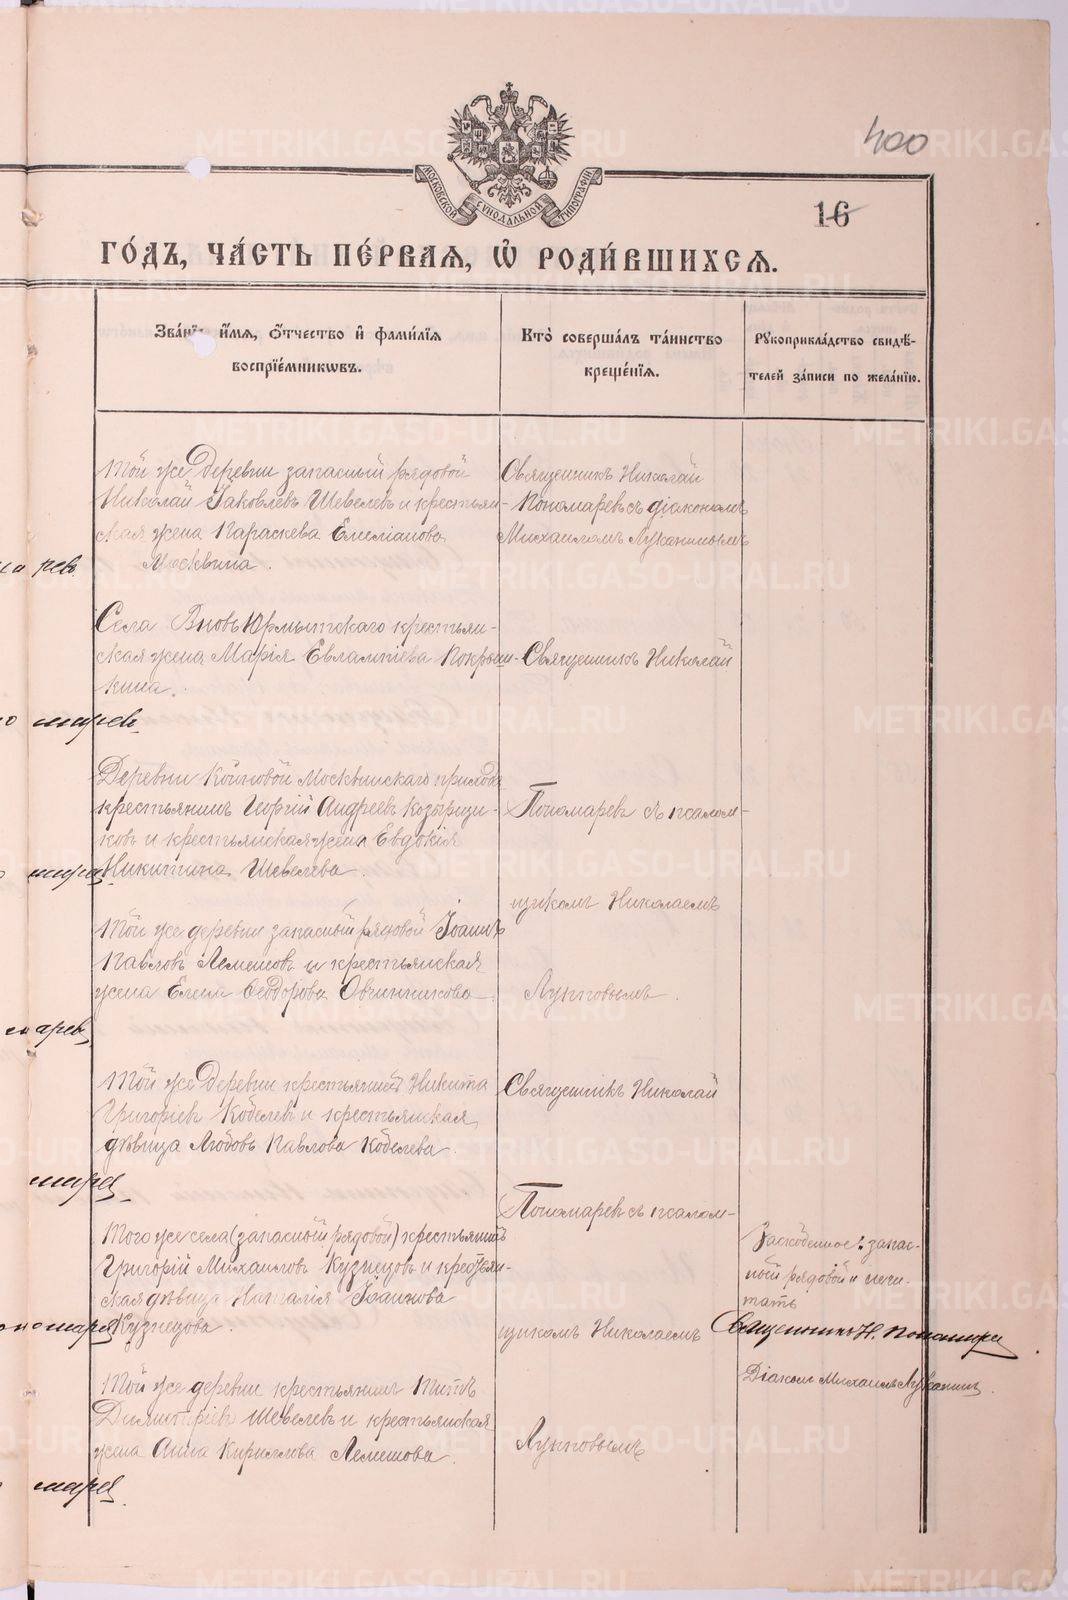 400
16
МОСКОВСКОЙ СѴНОДАЛЬНОЙ ТИПОГРАФІИ
ГО́ДЪ, ЧА́СТЬ ПЕ́РВАЯ, Ѡ҆ РОДИ́ВШИХСЯ.
Зва́нїе, и҆́мя, ѻ҆́тчество и҆ фами́лїя
воспрїе́мникѡвъ.
Кто̀ соверша́лъ та́инство
креще́нїя.
Рꙋкоприкла́дство свидѣ́-
телей за́писи по жела́нїю.
Той же Деревни запасный рядовой
Николай Іаковлевъ Шевелевъ и крестьян-
ская жена Параскева Емеліанова
Москвина.
Священникъ Николай
Пономаревъ съ діакономъ
Михаиломъ Луканинымъ
Села Вновь Юрмытскаго крестьян-
ская жена Марія Евлампіева Покрыш-
кина.
Священникъ Николай
Деревни Койновой Москвинскаго прихода
крестьянинъ Георгій Андреевъ
и крестьянская жена Евдокія
Никитина Шевелева.
Пономаревъ съ псалом-
щикомъ Николаемъ
Той же деревни запасный рядовой Іоаннъ
Павловъ Лемешовъ и крестьянская
жена Елена Ѳеодорова Овчинникова
Луппвовымъ.
Той же Деревни крестьянинъ Никита
Григоріевъ Кобелевъ и крестьянская
дѣвица Любовь Павлова Кобелева.
Священникъ Николай
Пономаревъ съ псалом-
Того же села (запасный рядовой) крестьянинъ
Григорій Михаиловъ Кузнецовъ и крестьян-
ская дѣвица Наталія Іоаннова
Кузнецова.
щикомъ Николаемъ
Заскобенное: запас-
ный рядовой не чи-
тать
Священникъ Н. Пономарев
Діаконъ Михаилъ Луканинъ.
Той же деревни крестьянинъ Титъ
Димитріевъ Шевелевъ и крестьянская
жена Анна Кириллова Лемешова.
METRIKI.GASO-URAL.RU